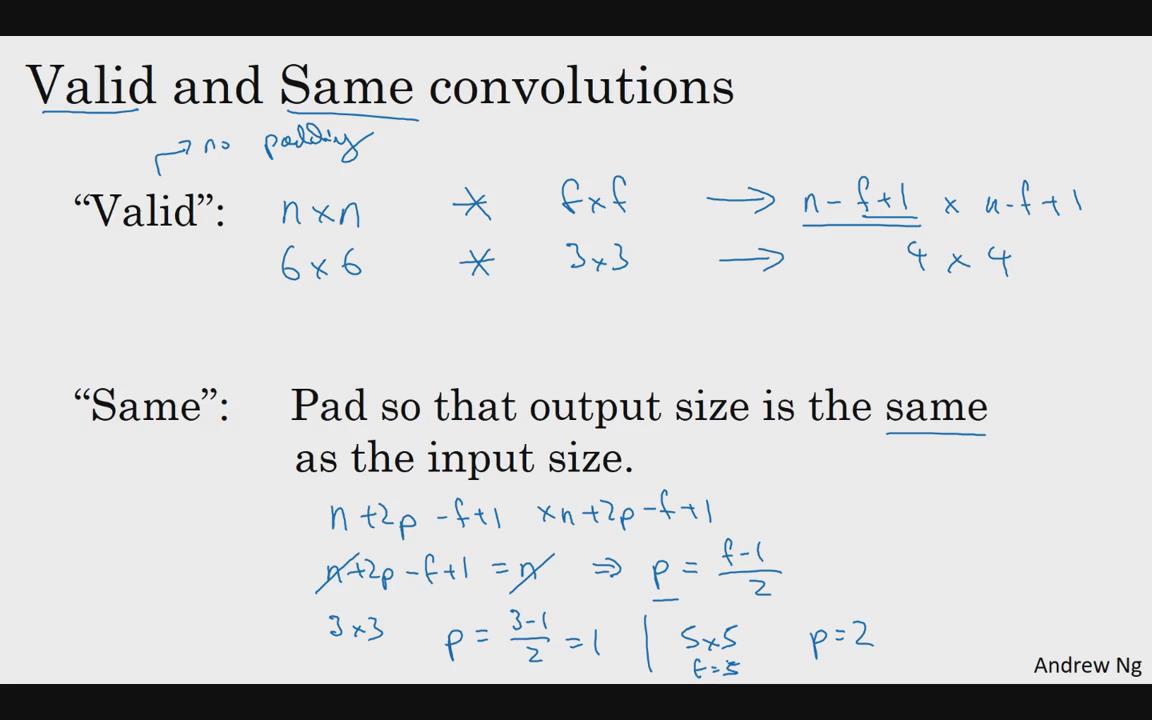 Valid and Same convolutions
→ no padding
“Valid”: n × n * f × f → n - f + 1 × n - f + 1
6 × 6 * 3 × 3 → 4 × 4
“Same”: Pad so that output size is the same
as the input size.
n + 2p - f + 1 × n + 2p - f + 1
n + 2p - f + 1 = n ⇒ p = (f - 1)/2
3 × 3 p = (3 - 1)/2 = 1 | 5 × 5 p = 2
f = 5
Andrew Ng